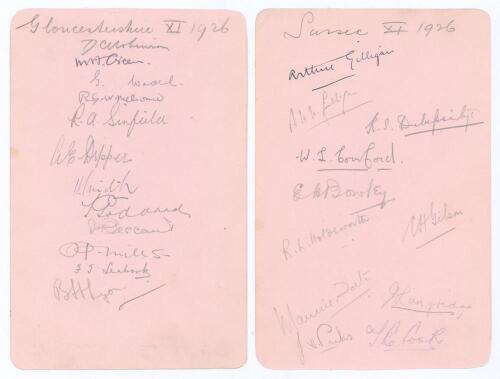 Gloucestershire XI 1926
D C Robinson
M. A. Green
R. G. W. Melsome
R A Sinfield
A E Dipper
H Smith
T Goddard
P. T. Mills
F. J. Seabrook
B H Lyon
Sussex XI 1926
Arthur Gilligan
K. S. Duleepsinhji
W. L. Cornford.
E H Bowley
R. L. Holdsworth
Maurice Tate
J Langridge
J H Parks
T E Cook